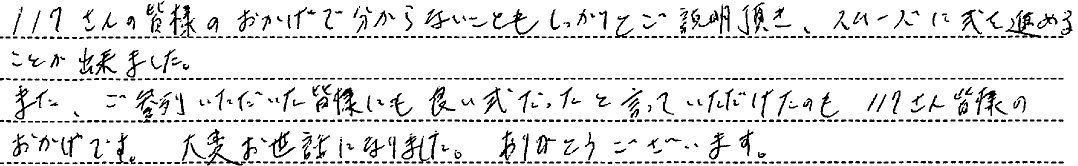 117さんの皆様のおかげで分からないこともしっかりとご説明頂き、スムーズに式を進める
ことが出来ました。
また、ご参列いただいた皆様にも良い式だったと言っていただけたのも117さん皆様の
おかげです。大変お世話になりました。ありがとうございます。